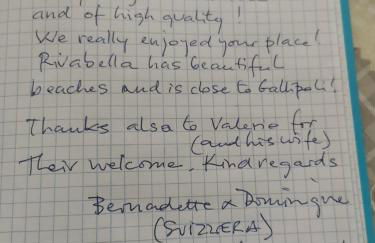 and of high quality!
We really enjoyed your place!
Rivabella has beautiful
beaches and is close to Gallipoli!
Thanks also to Valerio for
(and his wife)
Their welcome. Kind regards
Bernadette & Dominque
(SVIZZERA)